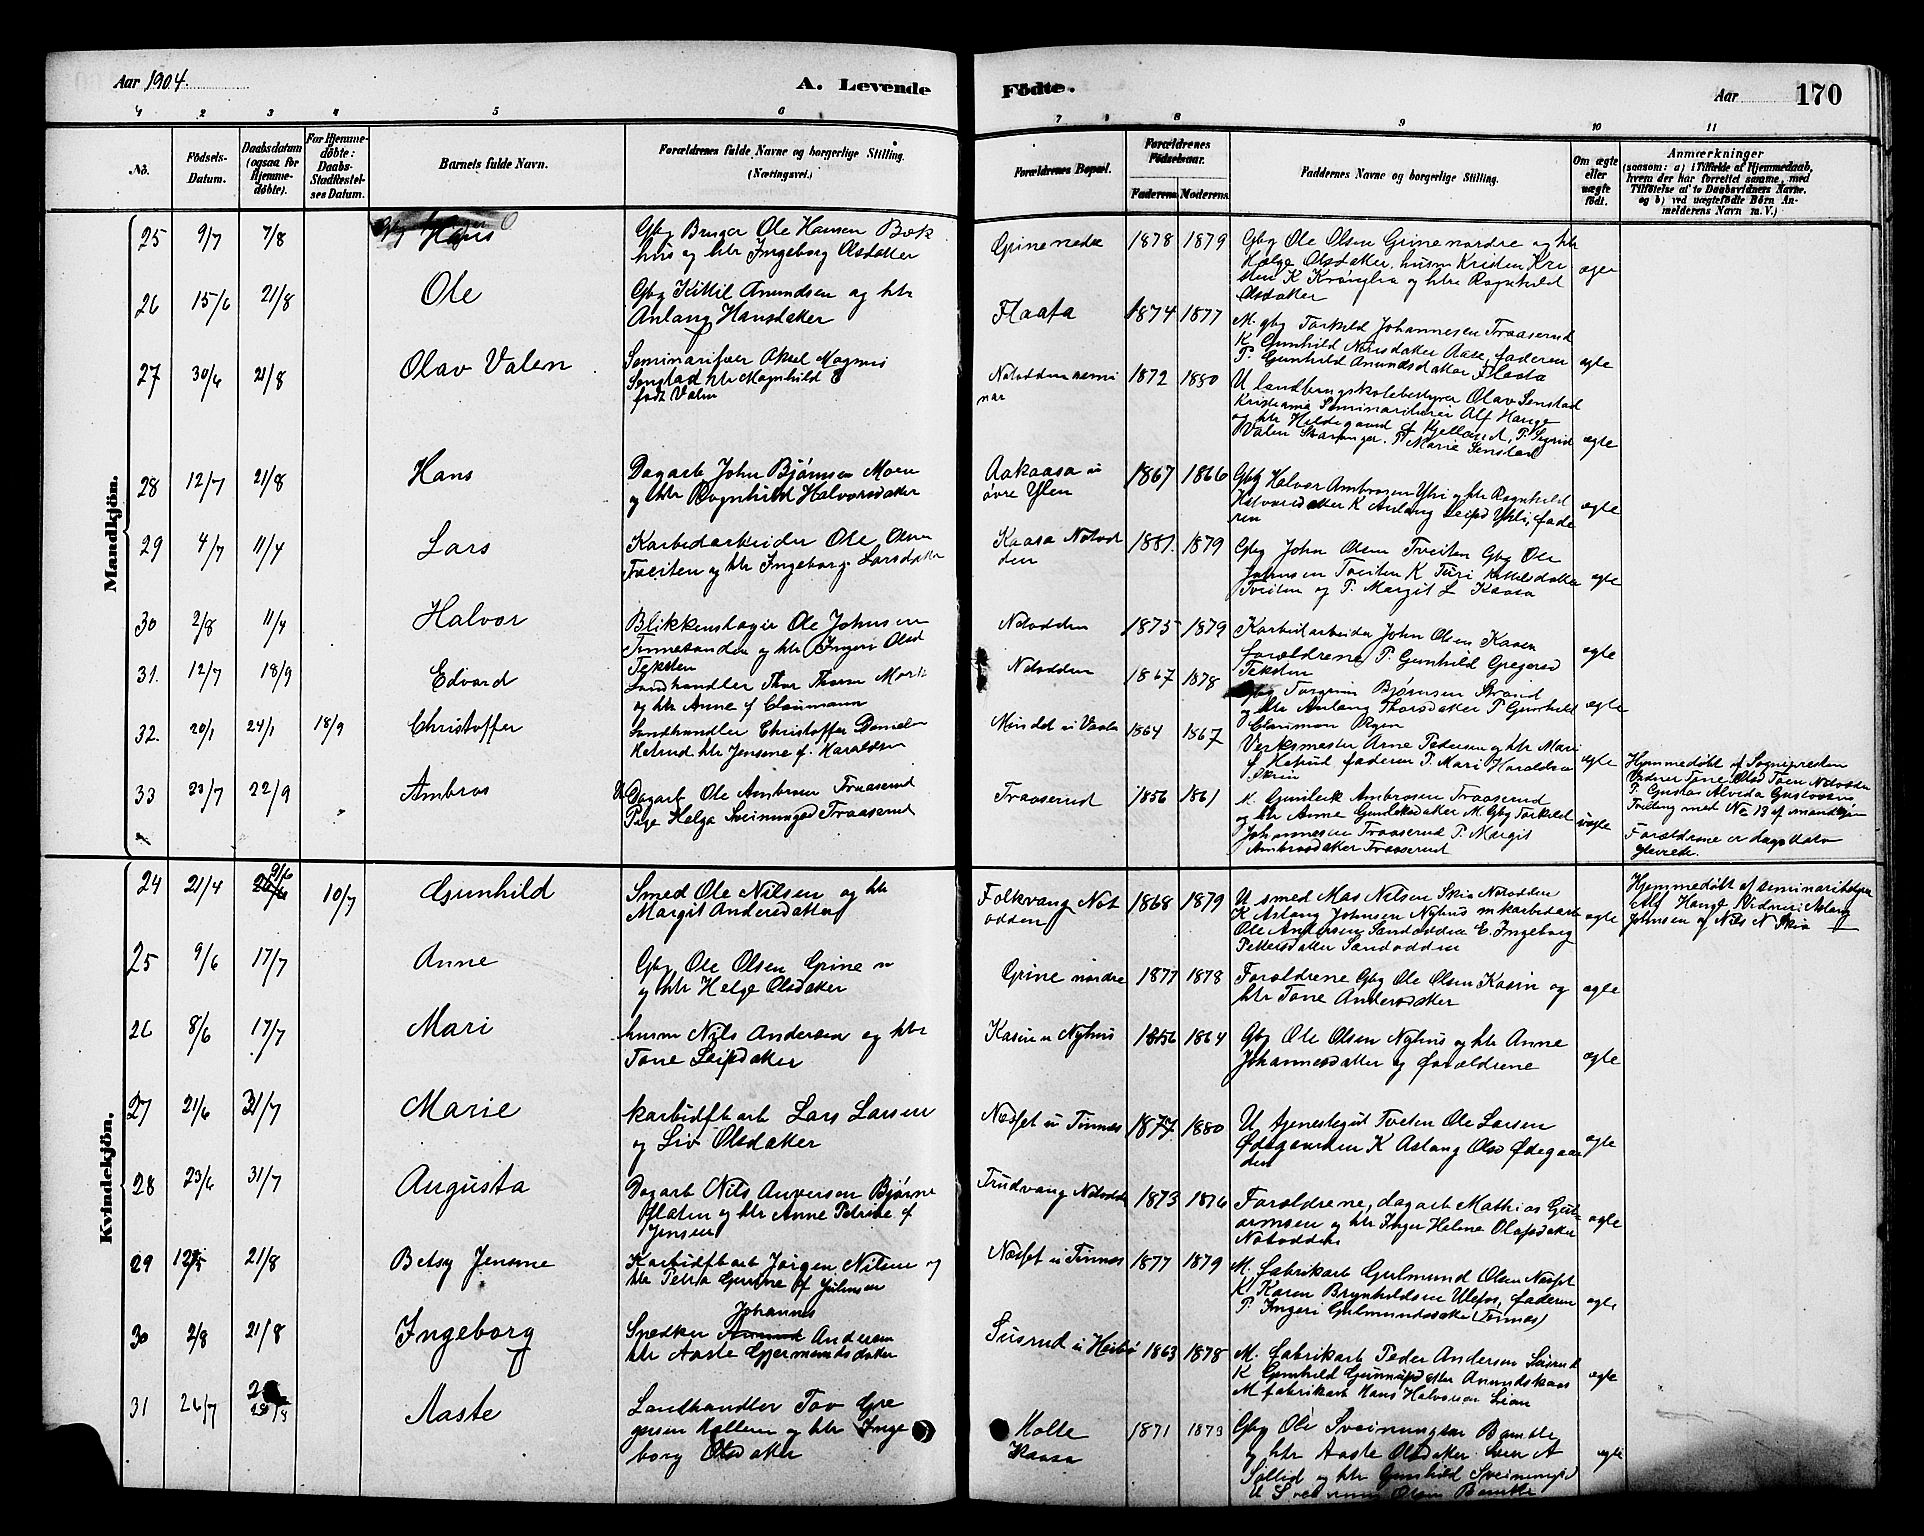 Aar 1904.
A. Levende
Födte.
Aar
170
4 2 3 4 5 6 7 8 8 9 10 11
No.
Födsels-
Datum.
Daabsdatum
(ogsaa for
Hjemme-
döbte).
For Hjemme-
döbte:
Daabs-
Stadfæstel-
ses Datum.
Barnets fulde Navn.
Forældrenes fulde Navne og borgerlige Stilling.
(Næringsvei.)
Forældrenes Bopæl.
Forældrenes
Födselsaar.
Faderens
Moderens.
Faddernes Navne og borgerlige Stilling.
Om ægte
eller
uægte
födt.
Anmærkninger
(saasom: a) i Tilfælde af Hjemmedaab,
hvem der har forrettet samme, med
Tilföielse af to Daabsvidners Navne.
og b) ved uægtefödte Börn An-
melderens Navn m. V.)
Mandkjön.
25 9/7 7/8
Hans
Gbg Bruger Ole Hansen Bæk
hus og htr Ingeborg Olsdatter
Grine nedre
1878 1879
Gbg Ole Olsen Grine nordre og htr
Helge Olsdatter, husm Kristen Kri
sten K og htr Ragnhild
Olsdatter
ægte
26 15/6 21/8
Ole
Gbg Kittil Amundsen og htr
Anlaug Hansdatter
Flaata
1874 1877
M. gbg Torkild Johannesen Traaserud
K Gunhild Nirisdatter Aase, faderen
P. Gunhild Amundsdatter Flaata
ægte
27 30/6 21/8
Olav Valen
Seminarilær Aksel Magnus
Senstad htr Magnhild
født Valen
Notodden semi
nar
1872 1880
U landbrugskolebestyrer Olav Senstad
Kristiania Seminarilærer Alf Hauge
og htr Hildegaard f Kjelland, P. Sigrid
Valen Stavanger. P Marie Senstad
ægte
28 12/7 21/8
Hans
Dagarb John Bjørnsen Moen
og htr Ragnhild Halvorsdatter
Aakaasa u
øvre Ylen
1867 1866
Gbg Halvor Ambrosen Ylvi og htr Ragnhild
Halvorsdatter K Anlaug Leifsd Ylvi, fade
ren
ægte
29 4/7 11/4
Lars
Karbidarbeider Ole Olsen
Tveiten og htr Ingeborg Larsdatter
Kaasa Notod
den
1881. 1879
Gbg John Olsen Tveiten Gbg Ole
Johnsen Tveiten K Turi Kittilsdatter
Tveiten og P. Margit L Kaasa
ægte
30 2/8 11/4
Halvor
Blikkenslager Ole Johnsen
Tinnesanden og htr Ingeri Olsd
Teksten
Notodden
1875 1879
Karbidarbeider John Olsen Kaasen
forældrene P. Gunhild Gregersd
Teksten
ægte
31. 12/7 18/9
Edvard
Landhandler Thor Thorsen Mork
og htr Anne f Claumann
Notodden
1867 1878
Gbg Torgrim Bjørnsen Strand
og htr Anlaug Thorsdatter P Gunhild
ægte
32. 20/1 24/1 18/9
Christoffer
Landhandler Christoffer Danielsen
Hetrud htr Jensine f. Haraldsen
1864 1867
Verksmester Arne Pedersen og htr Mari
f Hetrud faderen P. Mari Haraldsen
Skien
ægte
Hjemmedøbt af Sognepresten
Vidner Tone Olsd Toen Notodden
P. Gustav Alvida Gustavsen
Tvilling med No 13 af mandkjøn
33 20/7 22/9
Ambros
U Dagarb Ole Ambrosen Traaserud
Pige Helga Sveinungsd Traaserud
Traaserud
1856 1861
K. Gunleik Ambrosen Traaserud
og htr Anne Gunleiksdatter M. Gbg Torkild
Johannesen Traaserud P. Margit
Ambrosdatter Traaserud
uægte
Forældrene er
Kvindekjön.
24 21/4 9/6 10/7
Gunhild
Smed Ole Nilsen og htr
Margit Andersdatter
Folkvang Not
odden
1868 1879
U smed Mas Nilsen Skia Notodden
K Aslaug Johnsen Nyhus m karbidarb
Ole Andersen Sandodden E. Ingeborg
Pettersdatter Sandodden
ægte
Hjemmedøbt af seminaribestyrer
Alf Hauge Vidner: Aslaug
Johnsen og Nils N Skia
25 9/6 17/7
Anne
Gbg Ole Olsen Grine n
og htr Helge Olsdatter
Grine nordre
1877 1878
Forældrene Gbg Ole Olsen Kasin og
htr Tone Andersdatter
ægte
26 8/6 17/7
Mari
husm Nils Andersen og htr
Tone Leifsdatter
Kasin u Nyhus
1856 1864
Gbg Ole Olsen Nyhus og htr Anne
Johannesdatter og forældrene
ægte
27 21/6 31/7
Marie
Karbidft arb Lars Larsen
og Liv Olsdatter
Næsset u Tinnes
1877. 1880
U tjenestegut Tveten Ole Larsen
Ødegaarden K Aslaug Olsd Ødegaar
den
ægte
28 23/6 31/7
Augusta
Dagarb Nils Anversen Bjørne
flaten og htr Anne Petrine f
Jensen
Trudvang Notodden
1873 1876
Forældrene, dagarb Mathias Gut
ormsen og htr Inger Helene Olafsdatter
Notodden
ægte
29 12/5 21/8
Betsy Jensine
Karbidft arb Jørgen Nilsen og
htr Petra Gurine f Julinsen
Næsset u Tinnes
1877 1879
M. fabrikarb Gulmund Olsen Næsset
K Karen Brynhildsen Ulefos, faderen
P. Ingeri Gulmundsdatter (Tinnes)
ægte
30 2/8 21/8
Ingeborg
Johannes
Snedker Amund Andersen
htr Aaste Gjermundsdatter
Susrud u Heibø
1863 1878
M. fabrikarb Peder Andersen
K Gunhild Gunnufsdatter Amundskaas
M fabrikarb Hans Halvorsen Lien
ægte
31 26/7
Aaste
Landhandler Tov Gre
gersen Holten og htr Inge
borg Olsdatter
Holte
Kaasa
1871 1873
Gbg Ole Sveinungsen Bamble
og htr Aaste Olsdatter. A
Søllid og htr Gunhild Sveinungsd
U Olsen Bamble
ægte